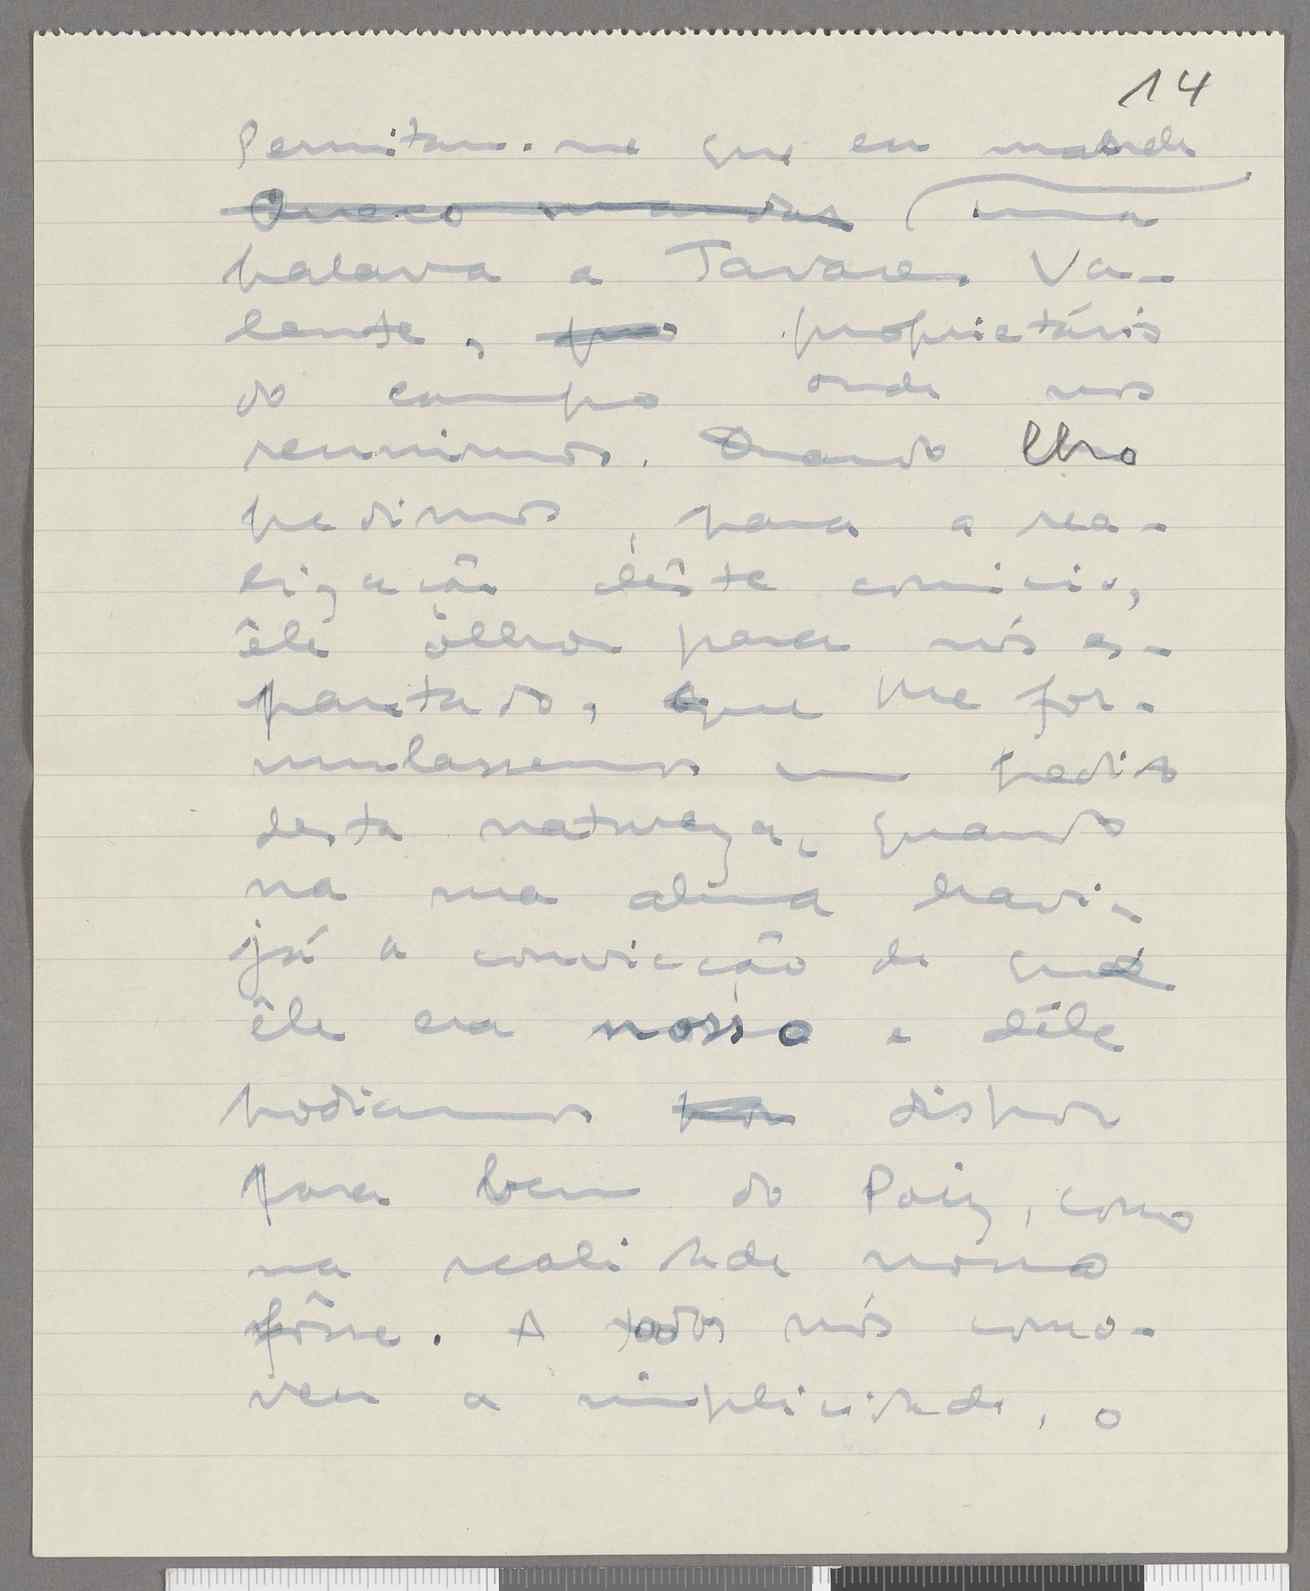 14
Permitam-me que eu mande
Quero mandar uma
palavra a Tavares Va-
lente, pro proprietário
do campo onde nos
reunimos. Quando lho
pedimos, para a rea-
lização dêste comicio,
êle olhou para nós es-
pantado, que lhe for-
mulassemos um pedido
desta natureza, quando
na sua alma havi-
já a convicção de que
êle era nosso e dêle
podiamos por dispor
para bem do Paiz, como
na realidade nosso
fôsse. A todos nós como-
veu a simplicidade, o